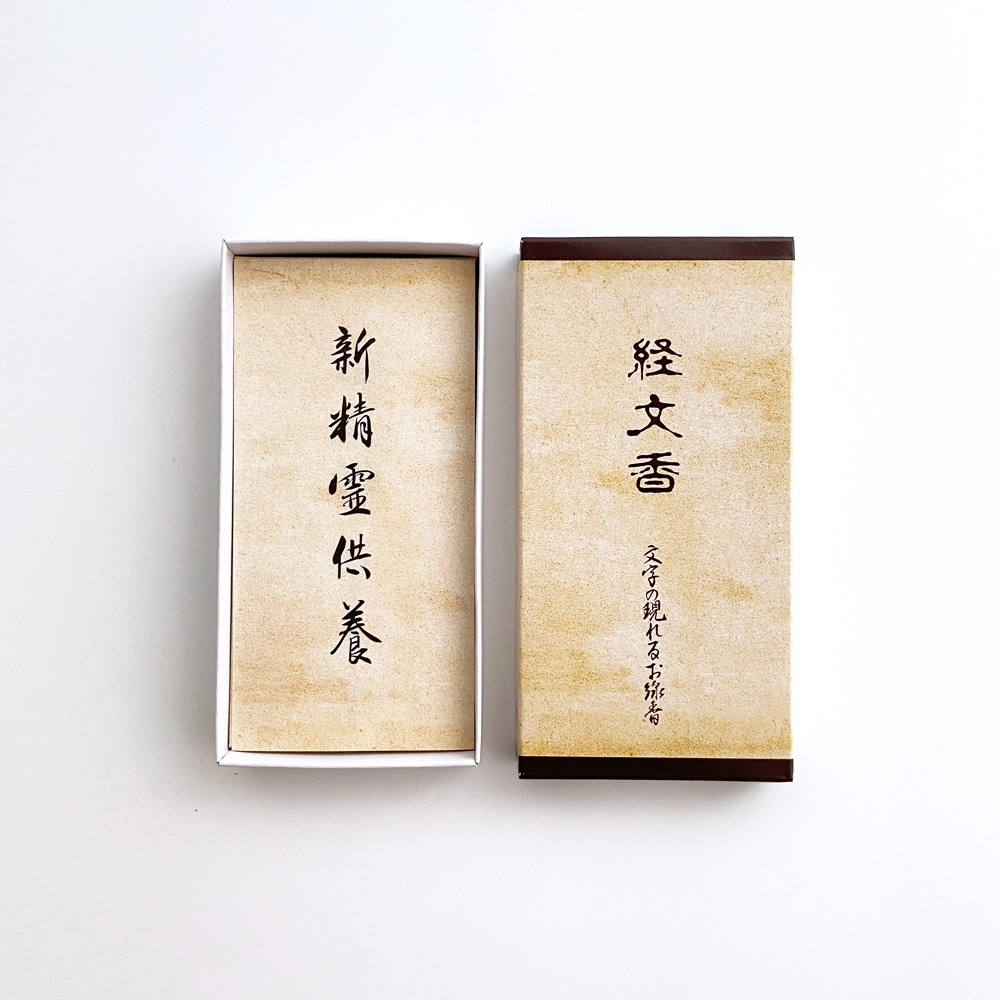 新精霊供養
経文香
文字の現れるお線香